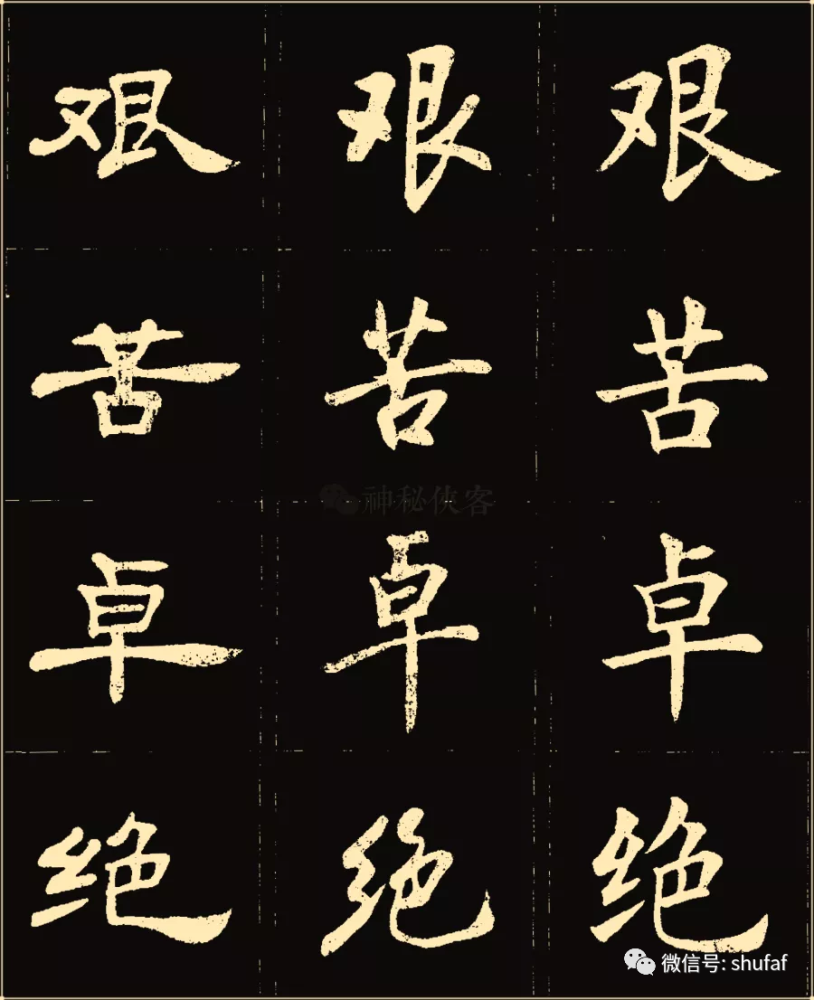 艰 艰 艰
苦 苦 苦
神秘侠客
卓 卓 卓
绝 绝 绝
微信号: shufaf